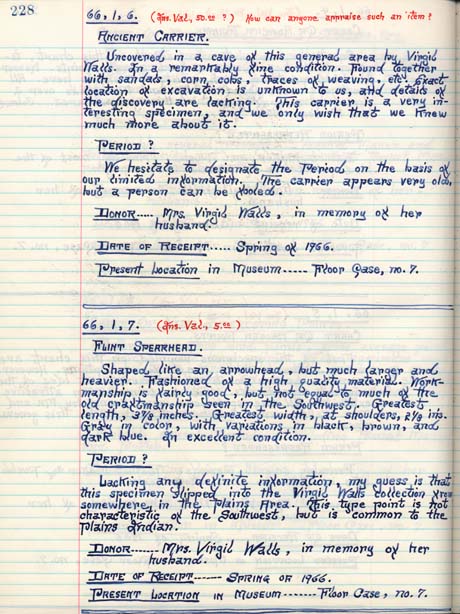 228
66, 1, 6. (Ins. Val., 50.00 ?) How can anyone appraise such an item?
ANCIENT CARRIER.
Uncovered in a cave of this general area by Virgil
Walls. In a remarkably fine condition. Found together
with sandals, corn, cobs, traces of weaving, etc. Exact
location of excavation is unknown to us, and details of
the discovery are lacking. This carrier is a very in-
teresting specimen, and we only wish that we knew
much more about it.
PERIOD ?
We hesitate to designate the Period on the basis of
our limited information. The carrier appears very old,
but a person can be fooled.
DONOR..... Mrs. Virgil Walls, in memory of her
husband.
DATE OF RECEIPT..... Spring of 1966.
Present Location in Museum----- Floor Case, no. 7.
66, 1, 7. (Ins. Val., 5.00)
FLINT SPEARHEAD.
Shaped like an arrowhead, but much larger and
heavier. Fashioned of a high quality material. Work-
manship is fairly good, but not equal to much of the
old craftmanship seen in the Southwest. Greatest
length, 3 7/8 inches. Greatest width, at shoulders, 2 1/8 ins.
Gray in color, with variations in black, brown, and
dark blue. In excellent condition.
PERIOD ?
Lacking any definite information, my guess is that
this specimen slipped into the Virgil Walls collection from
somewhere in the Plains Area. This type point is not
characteristic of the Southwest, but is common to the
Plains Indian.
DONOR------- Mrs. Virgil Walls, in memory of her
husband.
DATE OF RECEIPT------ SPRING OF 1966.
PRESENT LOCATION IN MUSEUM ------- Floor Case, no. 7.